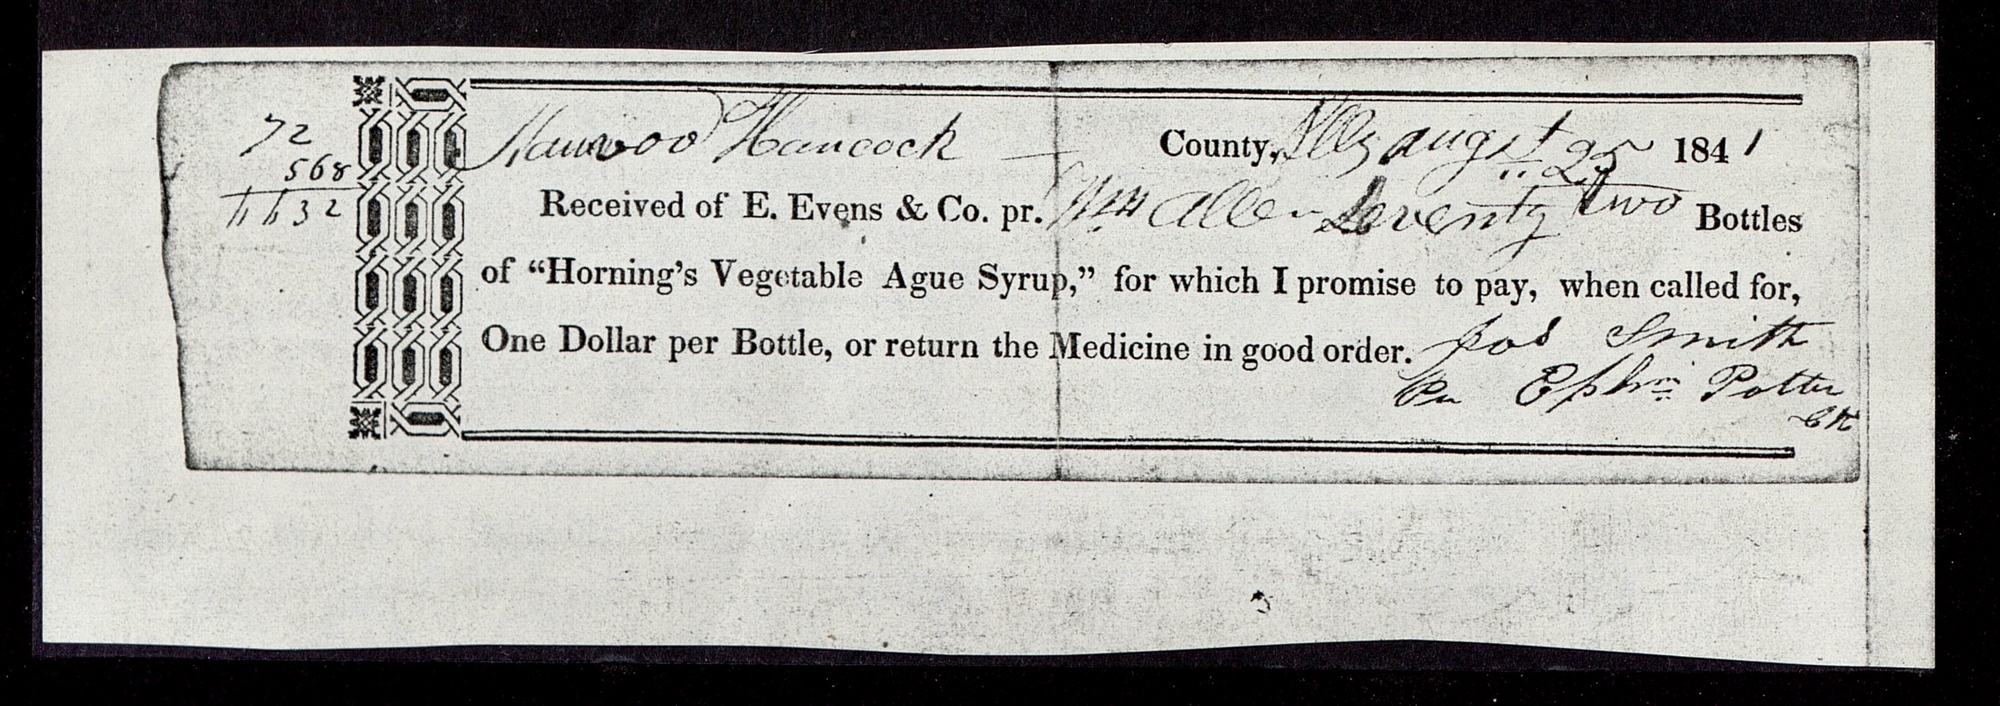 72
568
6632
Nauvoo Hancock — County, Ills august 25 1841
Received of E. Evens & Co. pr. Wm Allen Seventy two Bottles
of “Horning’s Vegetable Ague Syrup,” for which I promise to pay, when called for,
One Dollar per Bottle, or return the Medicine in good order. Jos Smith
Per Ephm Potter